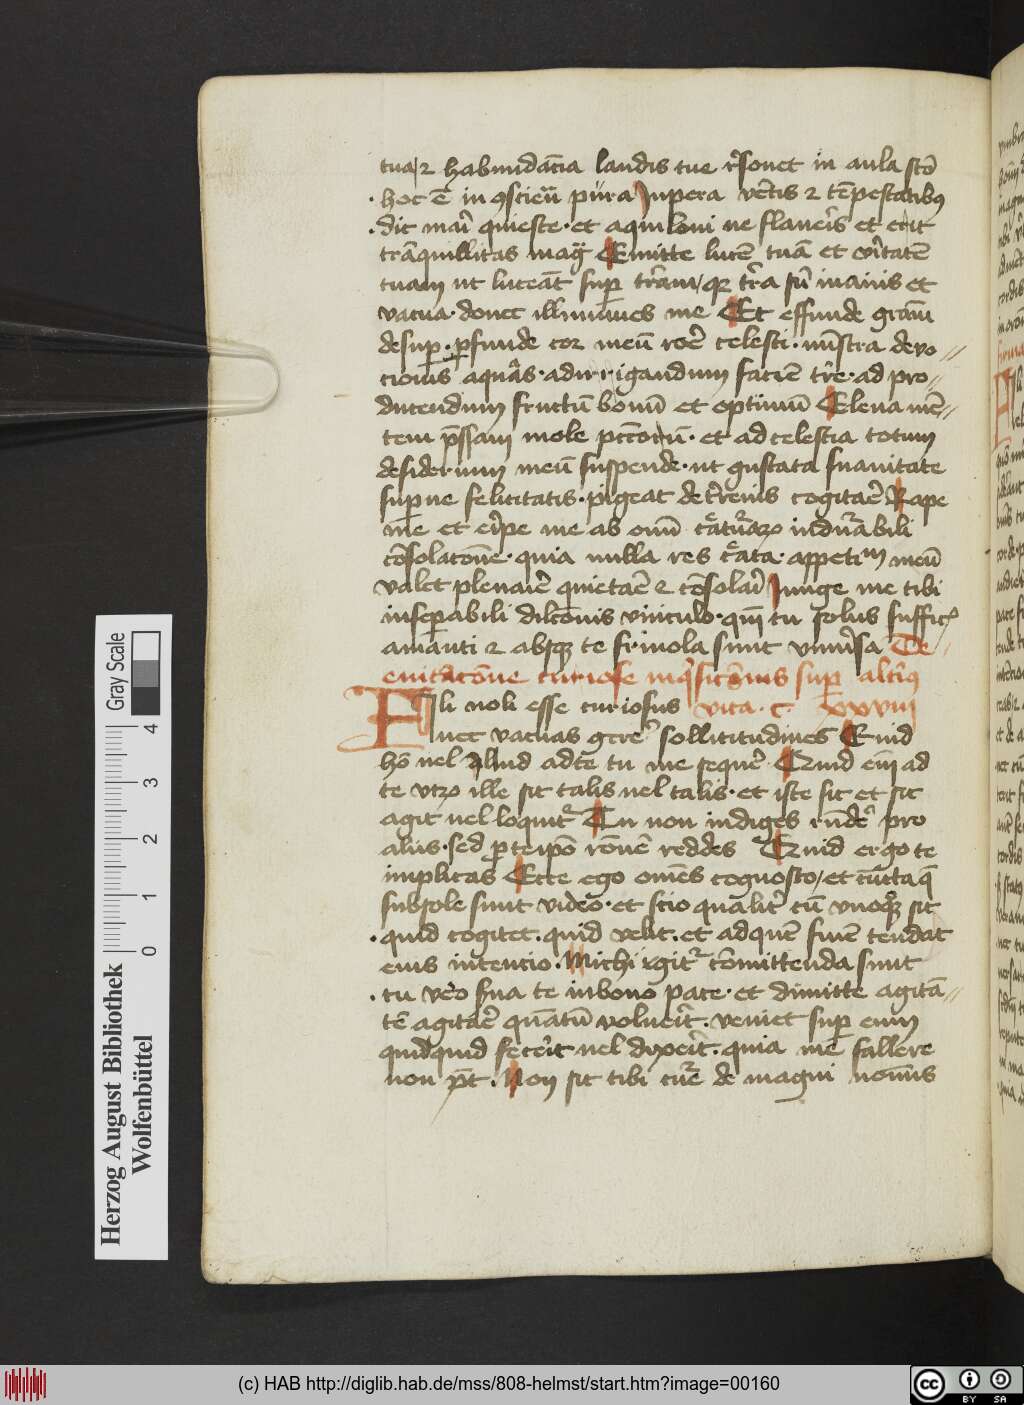 tua / et habundācia laudis tue rͤsonet in aula sctō
· hoc ē in ꝯsciē̄ pura Inpera vētis et tēpestatibꝯ
· dic mari quiesce · et aquiloni ne flaueris et erit
trāquillitas mag̅ Emitte lucē tuā et v̓itatē
tuam ut luceāt suꝑ tr̄am / qꝛ tr̄a sū inanis et
vacua · donec illumines me Et effunde grām
desuꝑ · ꝑfunde cor meū rore celesti · mīstra deuo //
cionis aquas · ad irrigandum faciē tr̄e · ad pro //
ducendum fructū bonū et optimū Eleua mē //
tem p̄ssam mole pctōrū · et ad celestia totum
desiderium meū suspende · ut gustata suauitate
suꝑne felicitatis · pigeat de tr̄renis cogitar̄e Rape
me et eripe me ab omi cͣatuͬaꝝ indurabili
cōsolacōne · quia nulla res cͤata · appetiᵐ meū
valet plenarie quietar̄e et cōsolari Junge me tibi
insepabili dilcōnis vinculo · qm̄ tu solus suffic̓
amanti et absqꝫ te friuola sunt vniu̓sa De
euitacōne curiose inqͥsicōnis suꝑ alteriꝯ
Fili noli esse curiosus vita . c . xxviii
nec vacuas gerer̓ sollicitudines Quid
hoc uel Aliud ad te tu me sequer̓ Quid em̄ ad
te vtꝝ ille sit talis uel talis · et iste sic et sic
agit uel loquit̉ Tu non indiges rn̄der̓ pro
aliis · sed ꝓ teipō rōnē reddes Quid ergo te
implicas Ecce ego omēs cognosco / et cūctaq̄
sub sole sunt video · et scio qualit̓ cū vnoqͦqꝫ sit
· quid cogitet . quid velit . et ad quē finē tendat
eius intencio . Michi igit̉ cōmittenda sunt
· tu vero s̓ua te in bono pace · et dimitte agitā //
tē agitar̄e quātū voluerit . veniet suꝑ eum
quidquid fecerit uel dixerit . quia me fallere
non p̄t . Non sit tibi cure de magni nominis
Herzog August Bibliothek
Wolfenbüttel
Gray Scale
0 1 2 3 4
(c) HAB http://diglib.hab.de/mss/808-helmst/start.htm?image=00160
cc BY SA